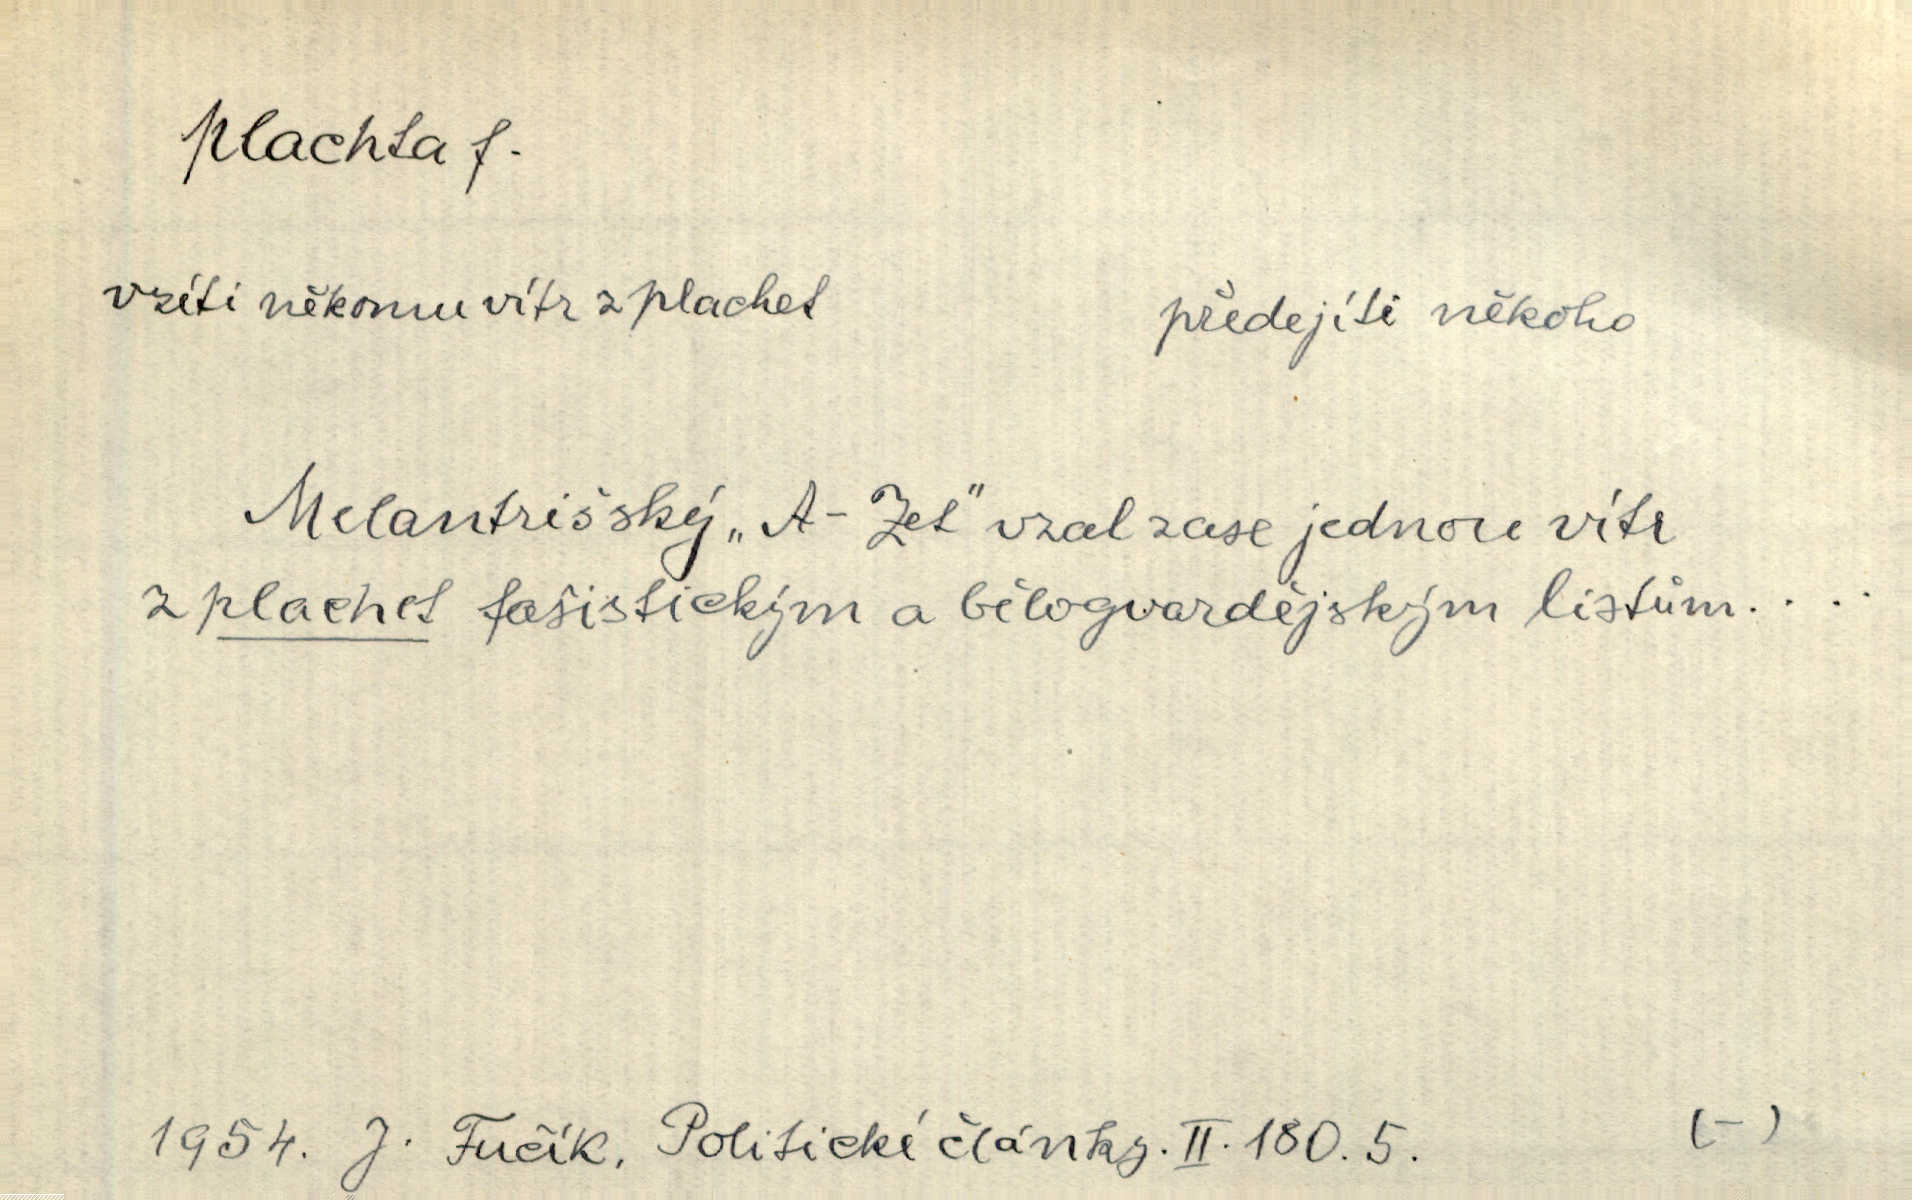 plachta f.
vzíti někomu vítr z plachet
předejíti někoho
Melantrišský „A-Zet" vzal zase jednou vítr
z plachet fašistickým a bělogvardějským listům....
1954. J. Fučík, Politické články. II. 180. 5. (-)